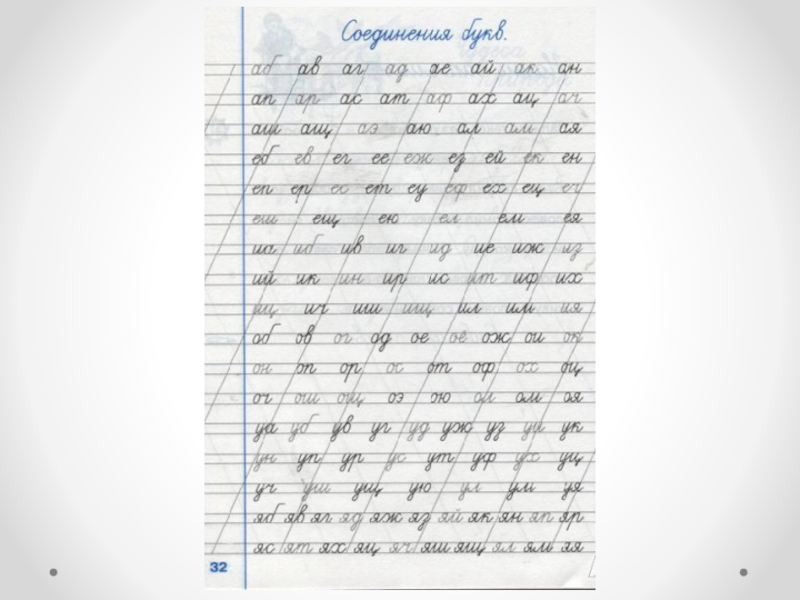 Соединения букв.
аб ав аг ад ае ай ак ан
ап ар ас ат аф ах ац ач
аш ащ аэ аю ал ам ая
еб ев ег ее еж ез ей ек ен
еп ер ес ет еу еф ех ец еч
еш ещ ею ел ем ея
иа иб ив иг ид ие иж из
ий ик ин ир ис ит иф их
иц ич иш ищ ил им ия
об ов ог од ое оё ож ои ок
он оп ор ос от оф ох оц
оч ош ощ оэ ою ол ом оя
уа уб ув уг уд уж уз уй ук
ун уп ур ус ут уф ух уц
уч уш ущ ую ул ум уя
яб яв яг яд яж яз яй як ян яп яр
яс ят ях яц яч яш ящ ял ям яя
32